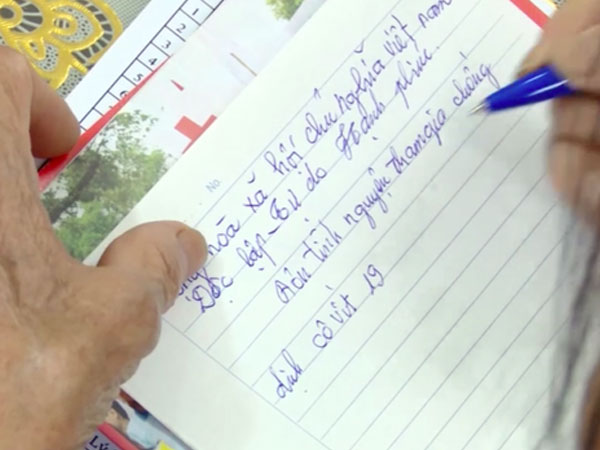 No.
hòa xã hội chủ nghĩa việt nam
Độc lập - Tự do Hạnh phúc.
Đơn tình nguyện tham gia chống
dịch cô vít 19
LÝ